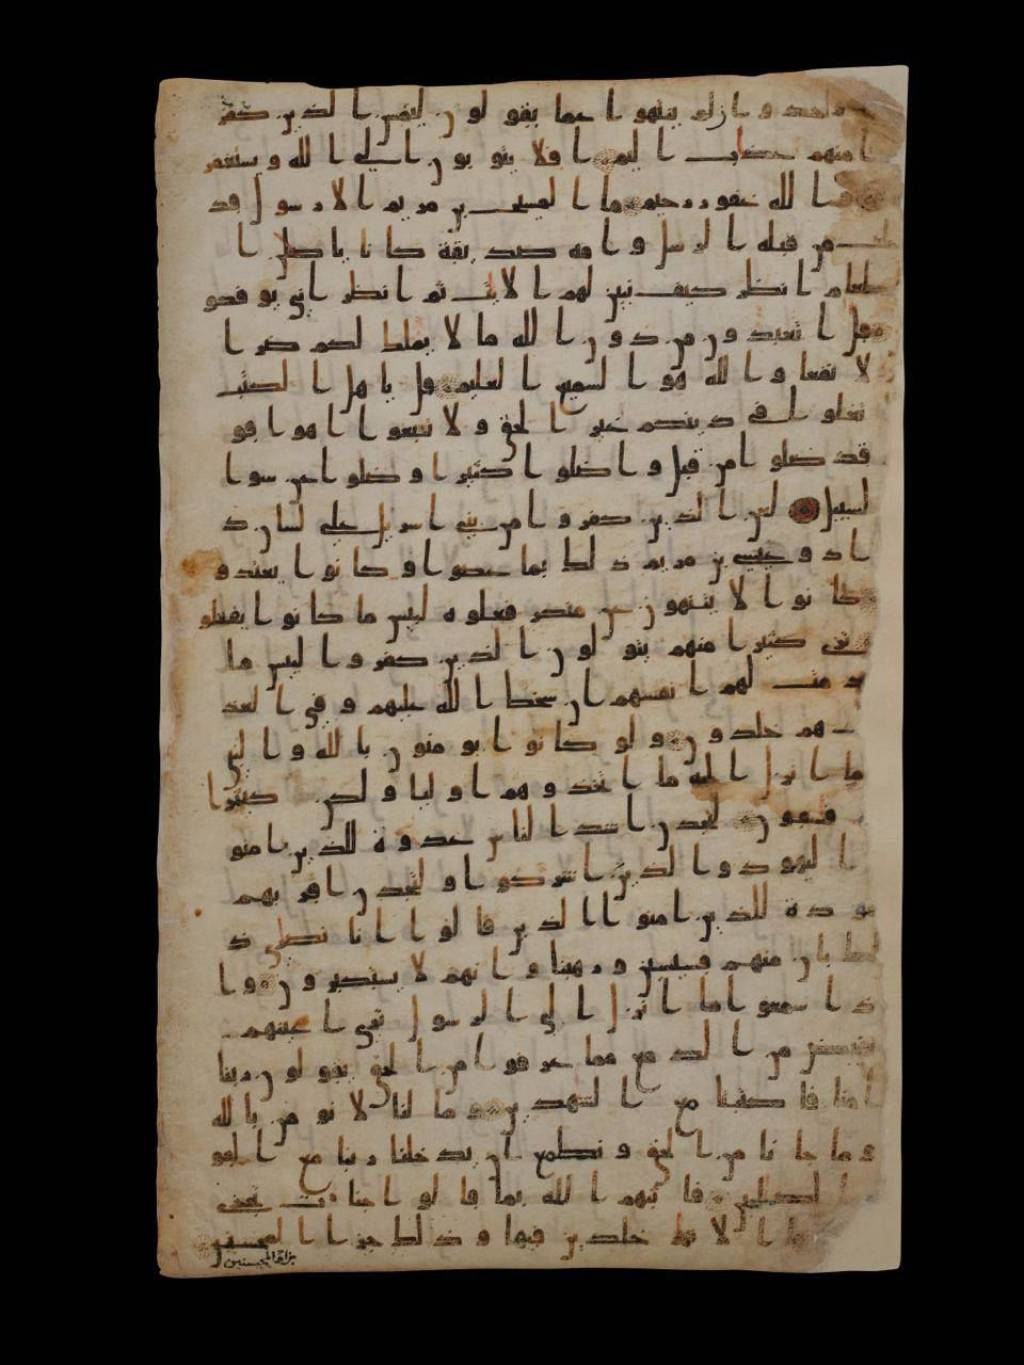 وحد وان لم ينتهوا عما يقولون ليمسن الذين كفر
وا منهم عذاب اليم افلا يتوبون الى الله ويستغفر
والله غفور رحيم ما المسيح بن مريم الا رسول قد
خلت من قبله الرسل وامه صديقة كانا ياكلن ا
لطعام انظر كيف نبين لهم الايت ثم انظر انى يوفكو
ن قل اتعبدون من دون الله ما لا يملك لكم ضرا
ولا نفعا والله هو السميع العليم قل ياهل الكتب
تغلوا في دينكم غير الحق ولا تتبعوا اهوا قو
قد ضلوا من قبل واضلوا كثيرا وضلوا عن سوا
السبيل لعن الذين كفروا من بني اسريل على لسان د
اود وعيسى بن مريم ذلك بما عصوا وكانوا يعتدو
كانوا لا يتنهون عن منكر فعلوه لبيس ما كانوا يفعلو
ن ترى كثيرا منهم يتولون الذين كفروا لبيس ما
قدمت لهم انفسهم ان سخط الله عليهم وفي العذ
اب هم خلدون ولو كانوا يومنون بالله والنبي
وما انزل اليه ما اتخذوهم اوليا ولكن كثيرا
فسقون لتجدن اشد الناس عدوة للذين امنو
ا اليهود والذين اشركوا ولتجدن اقربهم
مودة للذين امنوا الذين قالوا انا نصرى ذ
لك بان منهم قسيسين ورهبنا وانهم لا يستكبرون وا
ذا سمعوا ما انزل الى الرسول ترى اعينهم
تفيض من الدمع مما عرفوا من الحق يقولون ربنا
امنا فاكتبنا مع الشهدين وما لنا لا نومن بالله
وما جانا من الحق ونطمع ان يدخلنا ربنا مع القو
الصلحين فاثبهم الله بما قالوا جنت تجري
تحتها الانهر خلدين فيها وذلك جزا المحسنين
جزاؤ المحسنين